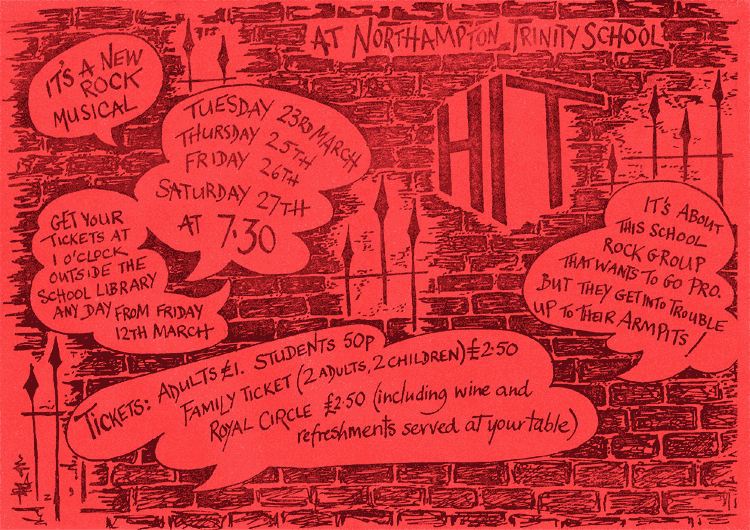 AT NORTHAMPTON TRINITY SCHOOL
IT'S A NEW
ROCK
MUSICAL
HIT
TUESDAY 23RD MARCH
THURSDAY 25TH
FRIDAY 26TH
SATURDAY 27TH
AT 7.30
GET YOUR
TICKETS AT
1 O'CLOCK
OUTSIDE THE
SCHOOL LIBRARY
ANY DAY FROM FRIDAY
12TH MARCH
IT'S ABOUT
THIS SCHOOL
ROCK GROUP
THAT WANTS TO GO PRO.
BUT THEY GET INTO TROUBLE
UP TO THEIR ARMPITS!
TICKETS: ADULTS £1. STUDENTS 50P
FAMILY TICKET (2 ADULTS, 2 CHILDREN) £2.50
ROYAL CIRCLE £2.50 (including wine and
refreshments served at your table)